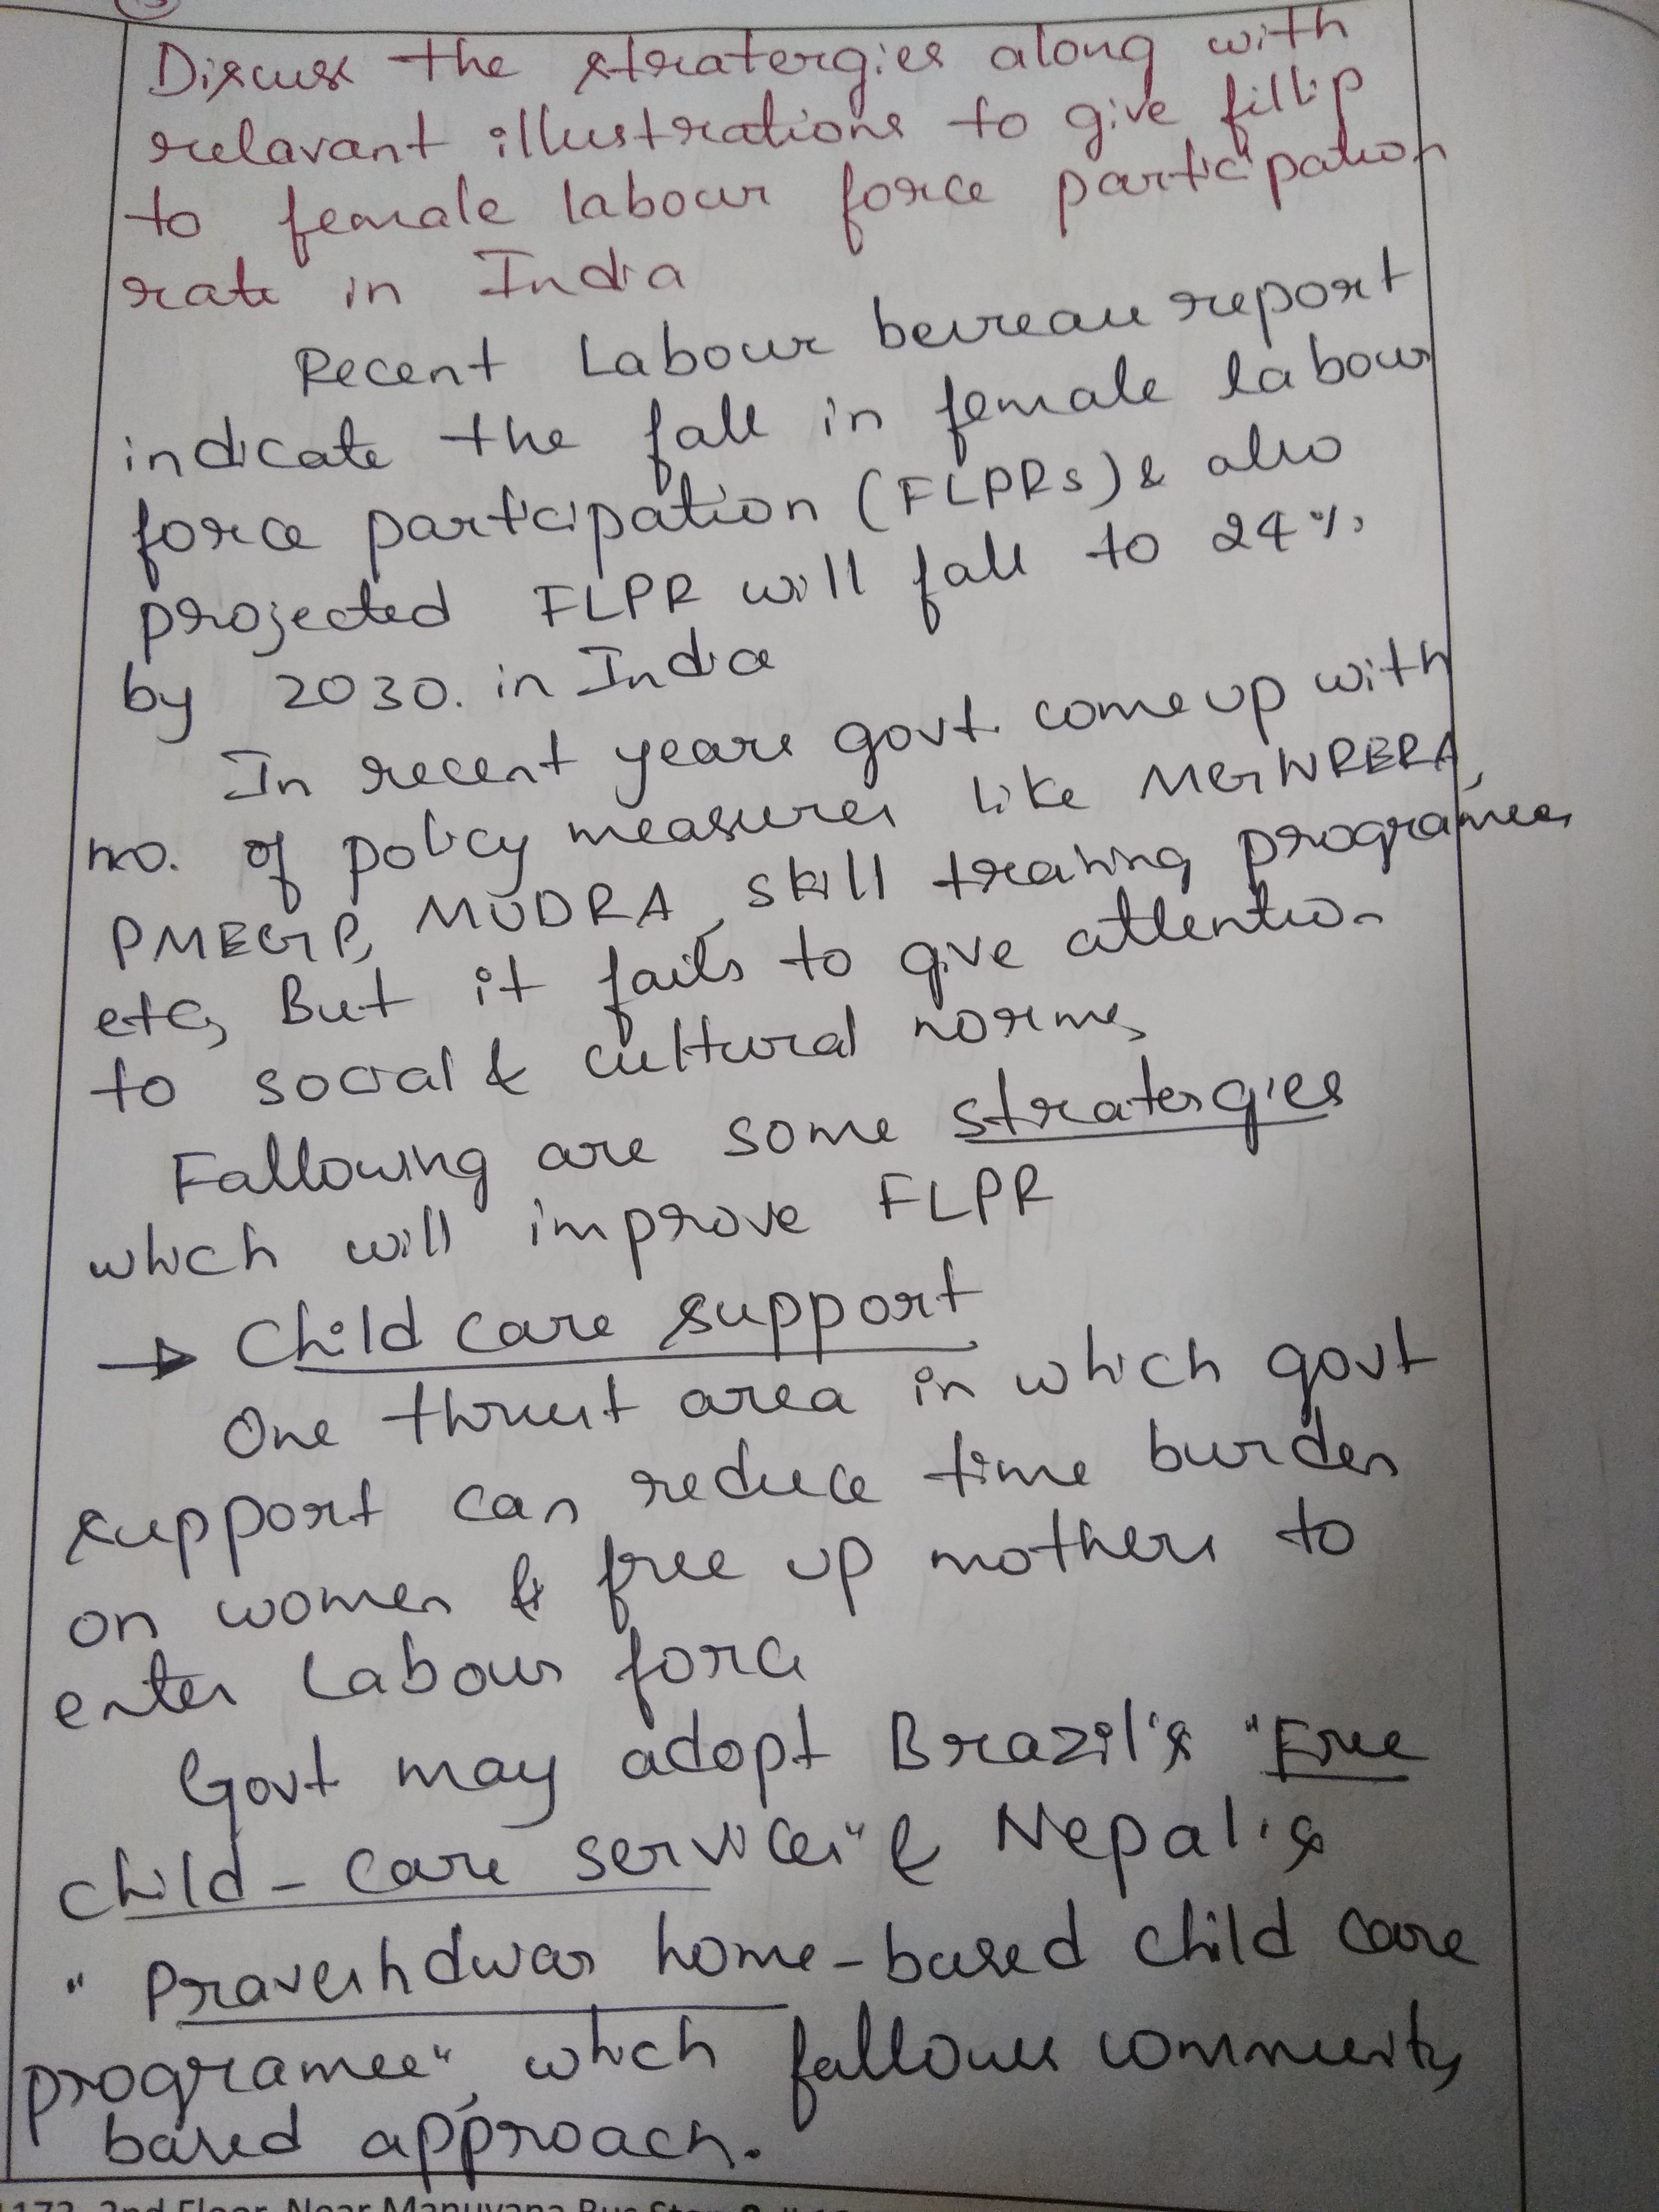 Discuss the stratergies along with
relavant illustrations to give fillip
to female labour force participation
rate in India
Recent Labour beureau report
indicate the fall in female labour
force participation (FLPRs) & also
projected FLPR will fall to 24%
by 2030. in India
In recent years govt. come up with
no. of policy measures like MGNRERA,
PMEGP, MUDRA, skill training programmes
etc, But it fails to give attention
to social & cultural norms,
Fallowing are some stratergies
which will improve FLPR
→ Child care support
One thrust area in which govt
support can reduce time burden
on women & free up mothers to
enter Labour force
Govt may adopt Brazil's "Free
child-care services" & Nepal's
"Praveshdwar home-based child care
programee", which fallows community
based approach.
2nd Floor, Near